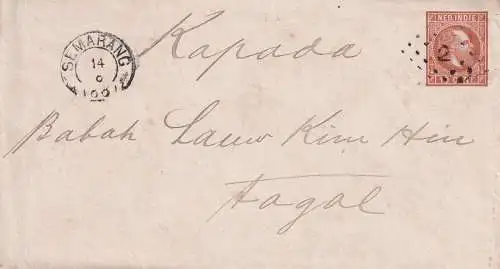 NED. INDIE
SEMARANG
14
2
Kapada
Babah Lauw Kim Hin
Tagal